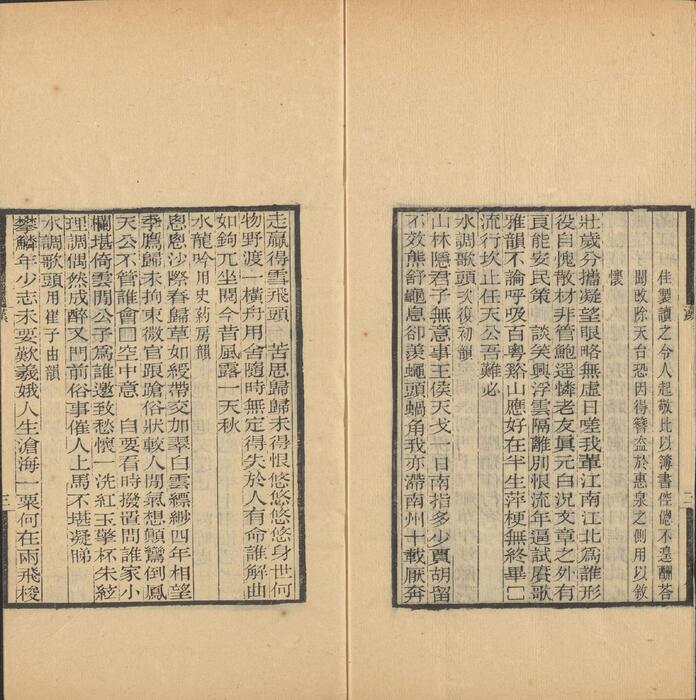 佳製讀之令人起敬比以簿書倥傯不遑酬荅
聞改除天台恐因得簪盍於惠泉之側用以敘
懷
壯歲分攜凝望眼略無虛日嗟我軰江南江北爲誰形
役自愧散材非管鮑遥憐老友眞元白況文章之外有
良能安民策　談笑興浮雲隔離別恨流年逼試賡歌
雅韻不論呼吸百粤谿山應好在半生萍梗無終畢□
流行坎止任天公吾難必
水調歌頭次復初韻
山林隱君子無意事王侯天戈一日南指多少賈胡留
不效熊舒龜息卻羨蠅頭蝸角我亦滯南州十載厭奔
漢
二
走贏得雪飛頭　苦思歸歸未得恨悠悠悠悠身世何
物野渡一橫舟用舍隨時無定得失於人有命誰解曲
如鉤兀坐閱今昔風露一天秋
水龍吟用史葯房韻
恩恩沙際春歸草如綬帶交加翠白雲縹緲四年相望
季鷹歸未拘束微官跟蹌俗狀較人閒氣想顛鸞倒鳳
天公不管誰會□空中意　自要看時撥置問誰家小
欄堪倚雲閒公子爲誰邀致愁懷一洗紅玉擎杯朱絃
理調偶然成醉又門前俗事催人上馬不堪凝睇
水調歌頭用崔子由韻
攀鱗年少志未要歎羲娥人生滄海一粟何在兩飛梭
三